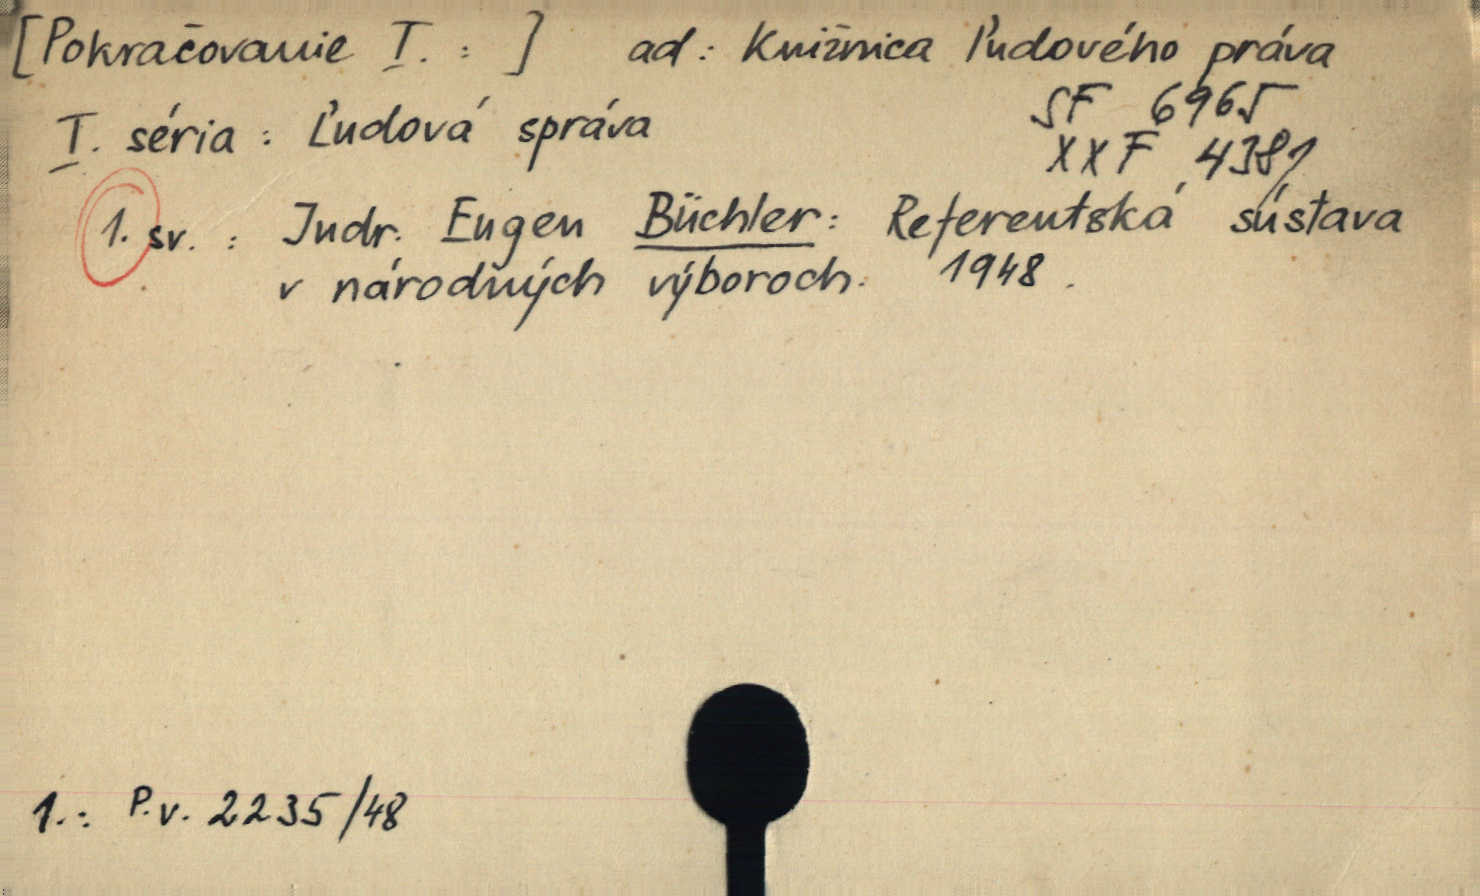 [Pokračovanie I. : ] ad: Knižnica ľudového práva
SF 6965
I. séria : Ľudová správa
XXF 4381
1. sv. : Judr. Eugen Büchler: Referentská sústava
v národných výboroch. 1948.
1.: P.v. 2235/48